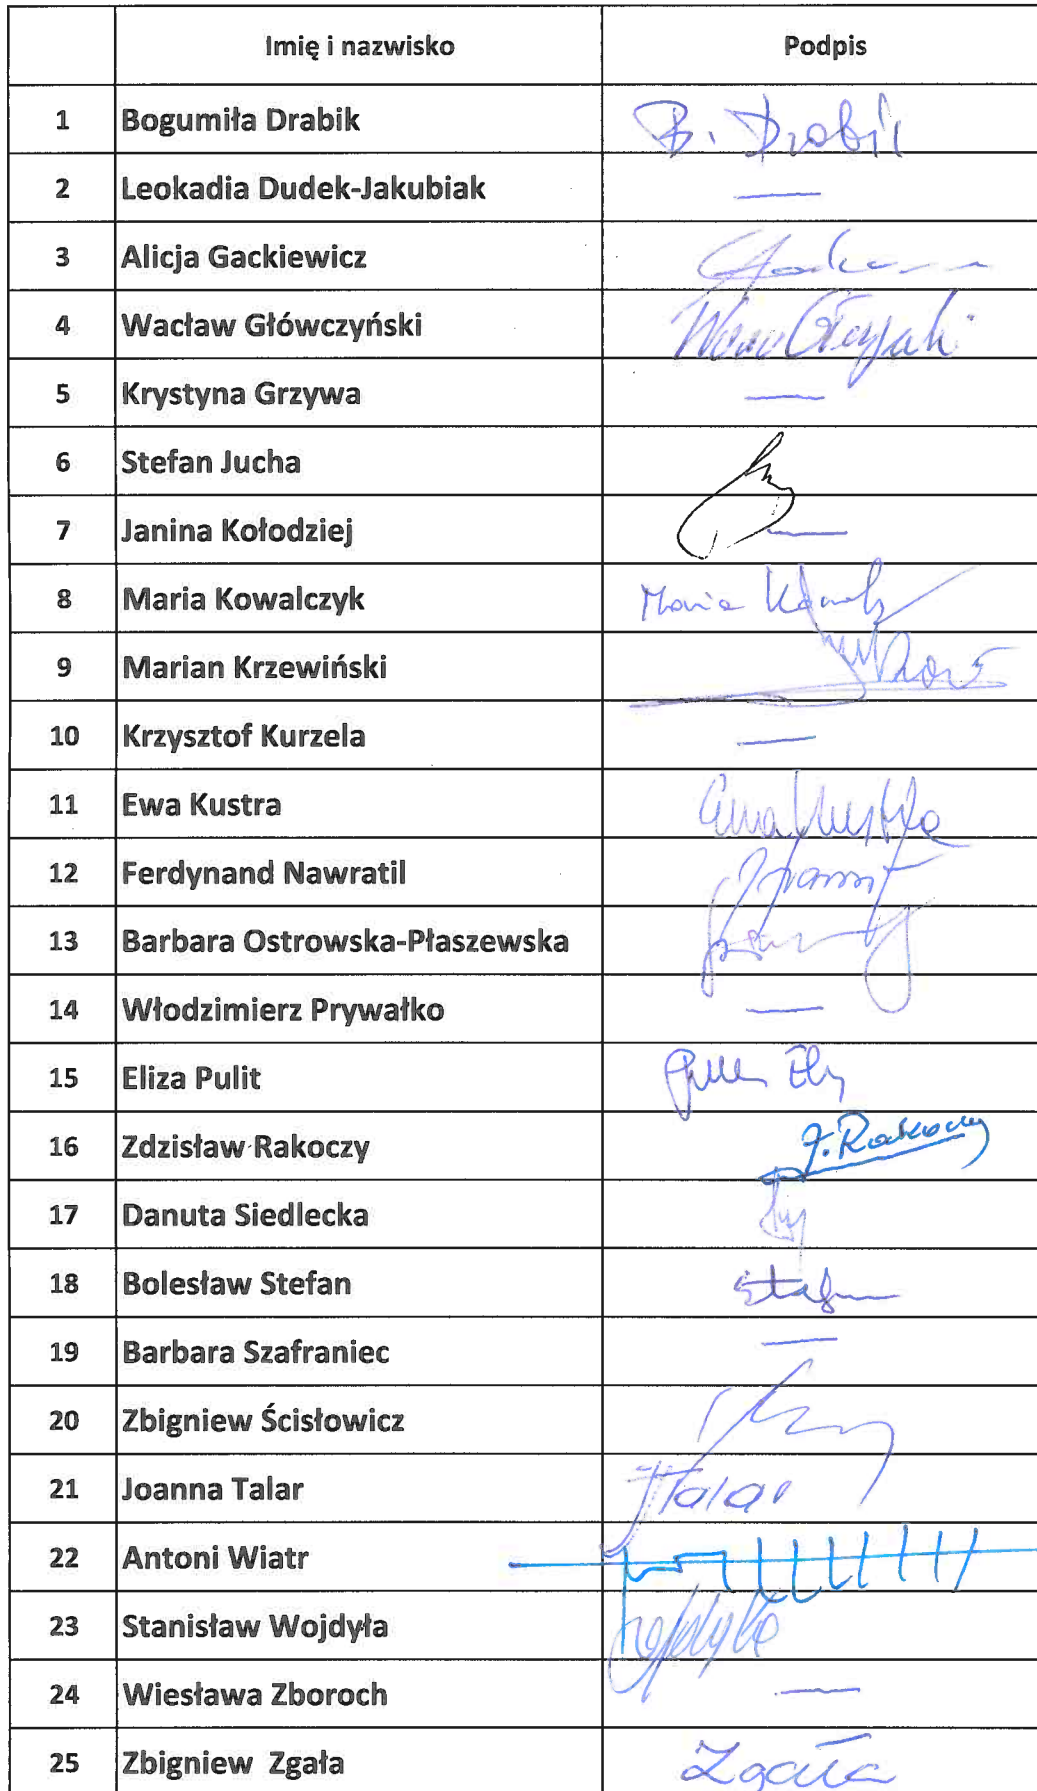 Imię i nazwisko Podpis
1 Bogumiła Drabik B. Drabik
2 Leokadia Dudek-Jakubiak —
3 Alicja Gackiewicz
4 Wacław Główczyński
5 Krystyna Grzywa —
6 Stefan Jucha
7 Janina Kołodziej —
8 Maria Kowalczyk Maria
9 Marian Krzewiński
10 Krzysztof Kurzela —
11 Ewa Kustra Ewa Kustra
12 Ferdynand Nawratil
13 Barbara Ostrowska-Płaszewska
14 Włodzimierz Prywałko —
15 Eliza Pulit
16 Zdzisław Rakoczy Z. Rakoczy
17 Danuta Siedlecka
18 Bolesław Stefan Stefan
19 Barbara Szafraniec —
20 Zbigniew Ścisłowicz
21 Joanna Talar JTalar
22 Antoni Wiatr
23 Stanisław Wojdyła Wojdyła
24 Wiesława Zboroch —
25 Zbigniew Zgała Zgała